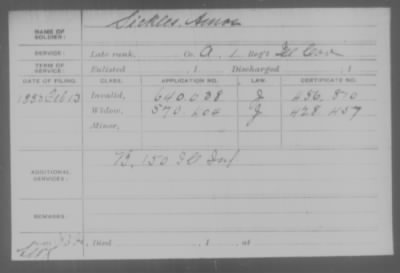 NAME OF SOLDIER: Sickles, Amos
SERVICE: Late rank, Co. A, 1 Reg't Ill Cav
TERM OF SERVICE: Enlisted , 1 Discharged , 1
DATE OF FILING. CLASS. APPLICATION NO. LAW. CERTIFICATE NO.
1888 Feb 13 Invalid, 640,088 J 486,870
Widow, 570,404 J 428,457
Minor,
ADDITIONAL SERVICES: 150 Ill Inf
REMARKS:
Died , 1 , at